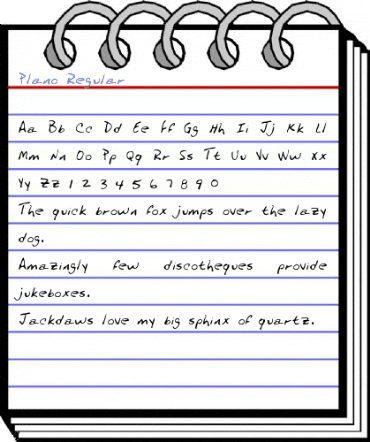 Plano Regular
Aa Bb Cc Dd Ee Ff Gg Hh Ii Jj Kk Ll
Mm Nn Oo Pp Qq Rr Ss Tt Uu Vv Ww Xx
Yy Zz 1 2 3 4 5 6 7 8 9 0
The quick brown fox jumps over the lazy
dog.
Amazingly few discotheques provide
jukeboxes.
Jackdaws love my big sphinx of quartz.